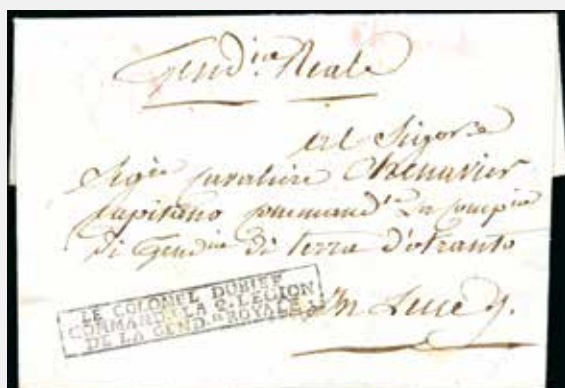 Gend.ria Reale
Al Sigor.e
Sig.re Cavaliere Chenavier
Capitano command.te la comp.ia
di Gend.ria di terra d'otranto
LE COLONEL DUBIEF
COMMAND.T LA 2.e LEGION
DE LA GEND.IE ROYALE
In Lecce